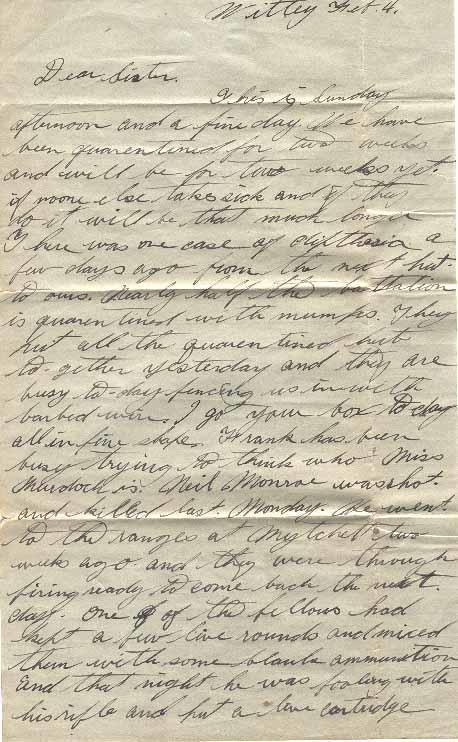 Witley Feb. 4.
Dear Sister.
This is Sunday
afternoon and a fine day. We have
been quarentined for two weeks
and will be for two weeks yet.
if noone else takes sick and if they
do it will be that much longer
There was one case of diptheria a
few days ago from the next hut
to ours. Nearly half the battalion
is quarentined with mumps. They
put all the quarentined huts
to-gether yesterday and they are
busy to-day fencing us in with
barbed wire. I got your box to day
all in fine shape. Frank has been
busy trying to think who Miss
Murdoch is. Neil Monroe was shot.
and killed last Monday. He went.
to the ranges at Mytchett two
weeks ago and they were through
firing ready to come back the next.
day. One of the fellows had
kept a few live rounds and miced
them with some blank ammunition
and that night he was fooling with
his rifle and put a live cartridge